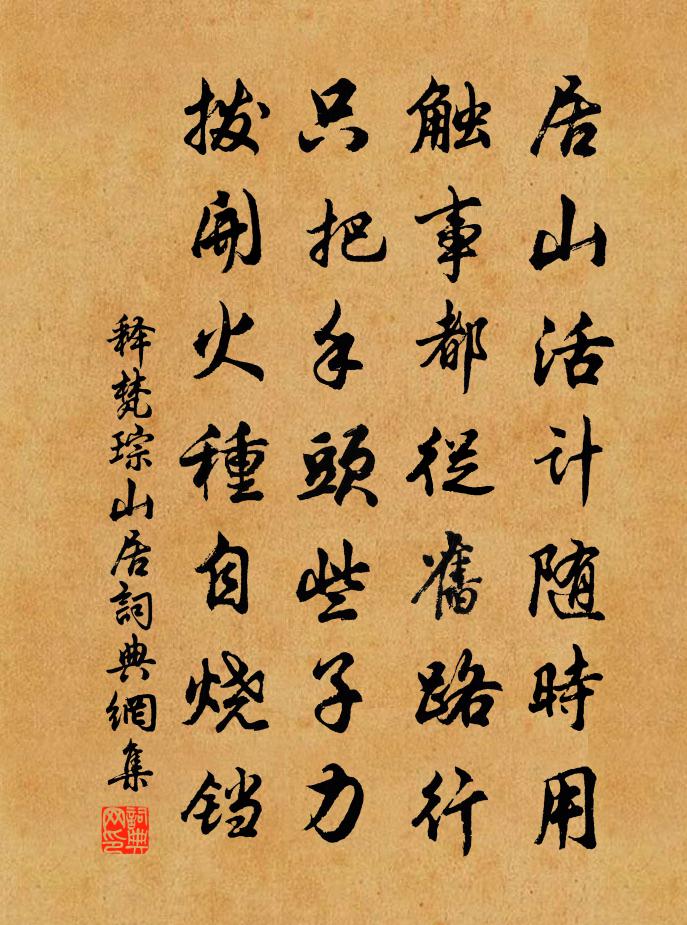 居山活计随時用
触事都從舊路行
只把手頭些子力
拨開火種自烧铛
释梵琮山居詞典網集
詞典网印